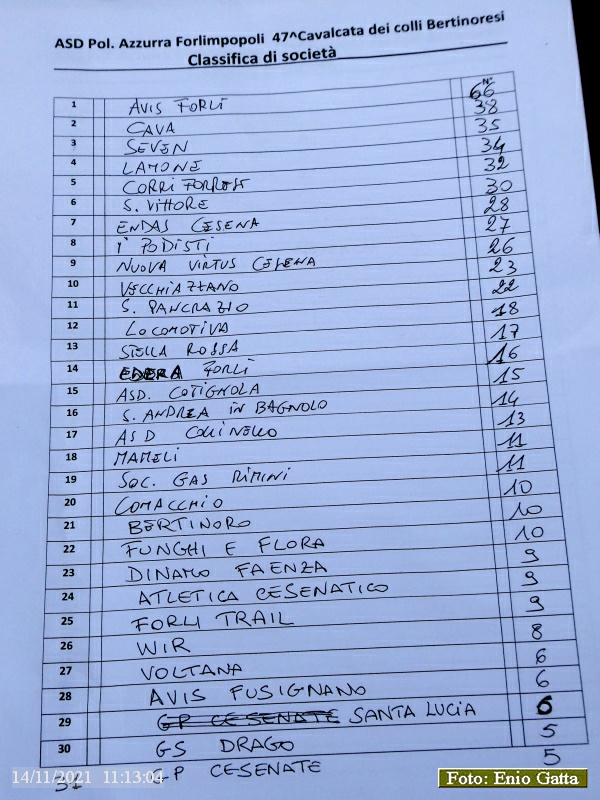 ASD Pol. Azzurra Forlimpopoli 47^Cavalcata dei colli Bertinoresi
Classifica di società
N°
1 AVIS FORLÌ 66
2 CAVA 38
3 SEVEN 35
4 LAMONE 34
5 CORRI FORREST 32
6 S. VITTORE 30
7 ENDAS CESENA 28
8 I PODISTI 27
9 NUOVA VIRTUS CESENA 26
10 VECCHIAZZANO 23
11 S. PANCRAZIO 22
12 LOCOMOTIVA 18
13 STELLA ROSSA 17
14 EDERA FORLÌ 16
15 ASD. COTIGNOLA 15
16 S. ANDREA IN BAGNOLO 14
17 ASD COLLINELLO 13
18 MAMELI 11
19 SOC. GAS RIMINI 11
20 COMACCHIO 10
21 BERTINORO 10
22 FUNGHI E FLORA 10
23 DINAMO FAENZA 9
24 ATLETICA CESENATICO 9
25 FORLI TRAIL 9
26 WIR 8
27 VOLTANA 6
28 AVIS FUSIGNANO 6
29 GP CESENATE SANTA LUCIA 6
30 GS DRAGO 5
31 GP CESENATE 5
14/11/2021 11:13:04
Foto: Enio Gatta